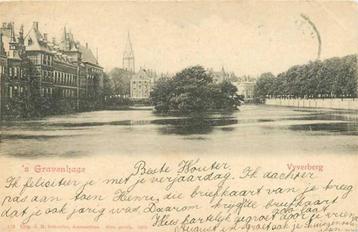 's Gravenhage
Vyverberg
Beste Wouter.
Ik feliciteer je met je verjaardag. Ik dachter
pas aan toen Henri, die briefkaart van je kreeg
dat je ook jarig was. Daarom krygt je briefkaart
wat later.
Wees hartelyk gegroet door je vriend